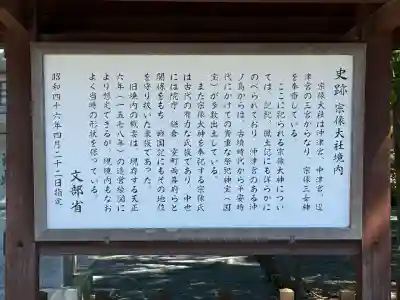 史跡 宗像大社境内
宗像大社は沖津宮、中津宮、辺
津宮の三宮からなり、宗像三女神
を奉斎している。
ここに祀られる宗像大神につい
ては、記紀、風土記にも詳らかに
のべられており、沖津宮のある沖
ノ島からは、古墳時代から平安時
代にかけての貴重な祭祀神宝(国
宝)が多数出土している。
また宗像大神を奉祀する宗像氏
は古代の有力な氏族であり、中世
には院庁、鎌倉、室町両幕府らと
関係をもち、戦国記にもその地位
を守り抜いた東族であった。
旧境内の概要は、現存する天正
六年(一五七八年)の造営絵図に
より想定できるが、現境内もなお
よく当時の形状を保っている。
文部省
昭和四十六年四月二十二日指定